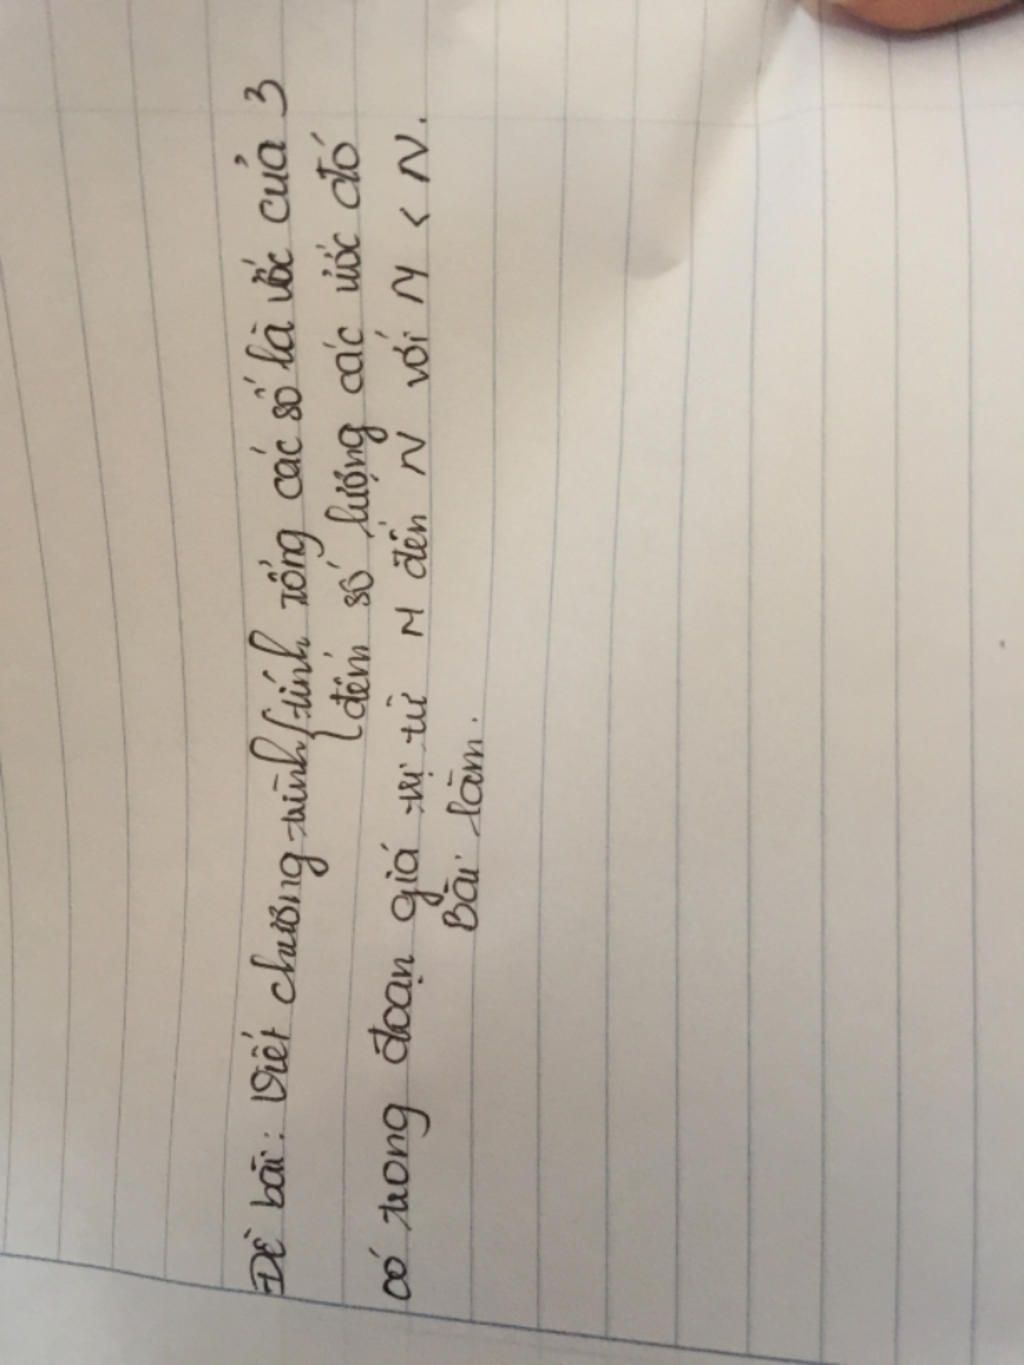 Đề bài: Viết chương trình { tính tổng các số là ước của 3
đếm số lượng các ước đó
có trong đoạn giá trị từ M đến N với M < N.
Bài làm.